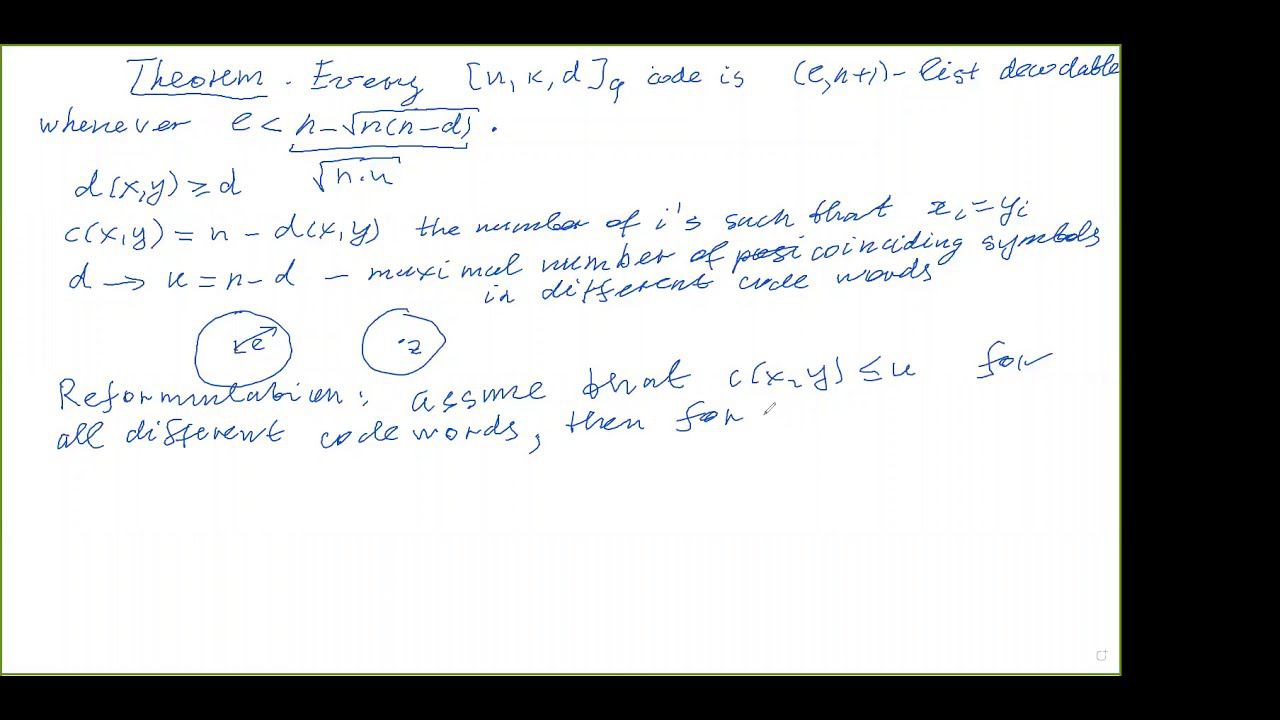 Theorem. Every [n, k, d]q code is (e, n+1) - list decodable
whenever e < n - √n(n-d) .
√n·u
d(x,y) ≥ d
c(x,y) = n - d(x,y) the number of i's such that xi = yi
d → u = n - d - maximal number of coinciding symbols
in different code words
e
z
Reformulation: assume that c(x,y) ≤ u for
all different code words, then for